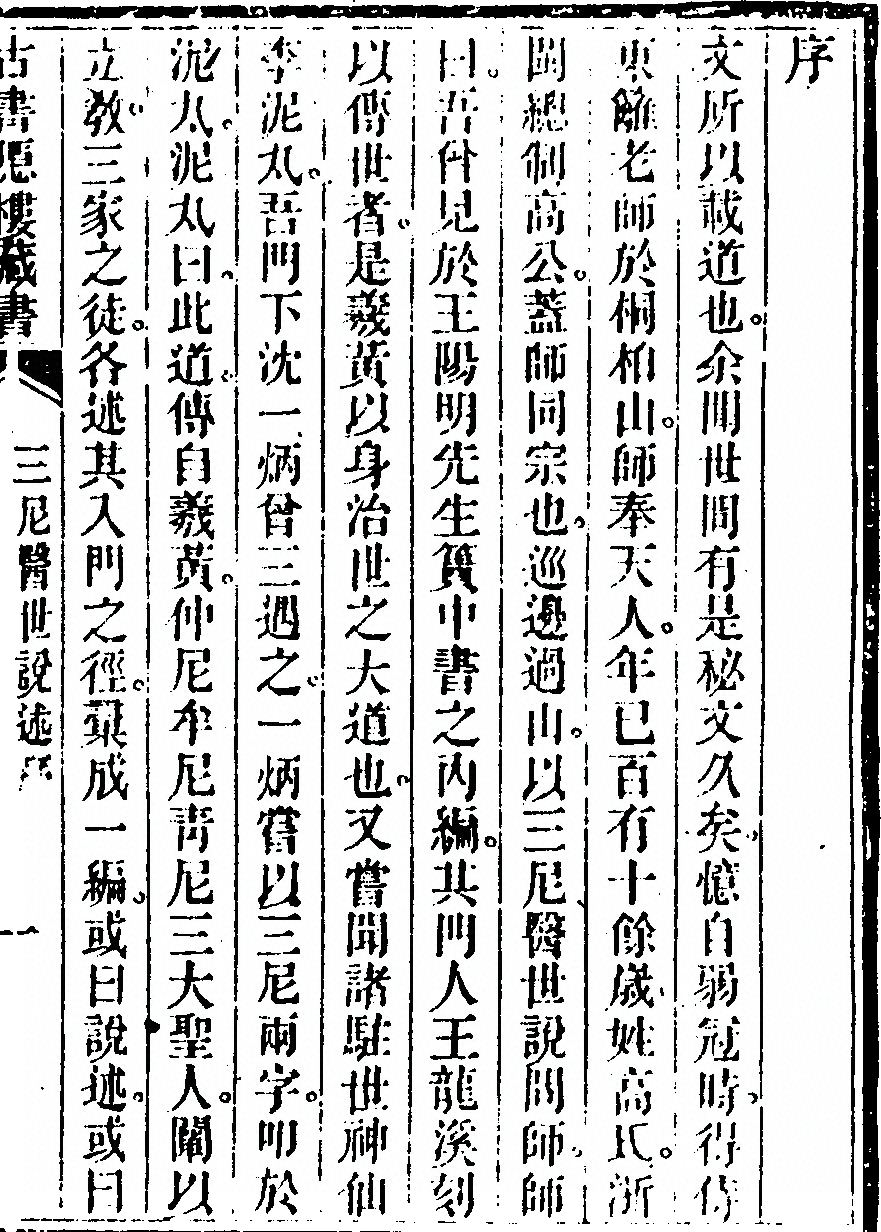 序
文所以載道也。余聞世間有是秘文久矣。憶自弱冠時。得侍
東籬老師於桐柏山。師奉天人。年已百有十餘歲。姓高氏。浙
閩總制高公。蓋師同宗也。巡邊過山。以三尼醫世說問師。師
曰。吾曾見於王陽明先生篋中書之內編。其門人王龍溪刻
以傳世者。是羲黃以身治世之大道也。又嘗聞諸駐世神仙
李泥丸。吾門下沈一炳曾三遇之。一炳嘗以三尼兩字。叩於
泥丸。泥丸曰。此道。傳自羲黃。仲尼牟尼靑尼三大聖人。闡以
立敎。三家之徒。各述其入門之徑。彙成一編。或曰說述。或曰
古書隱樓藏書
三尼醫世說述 序
一